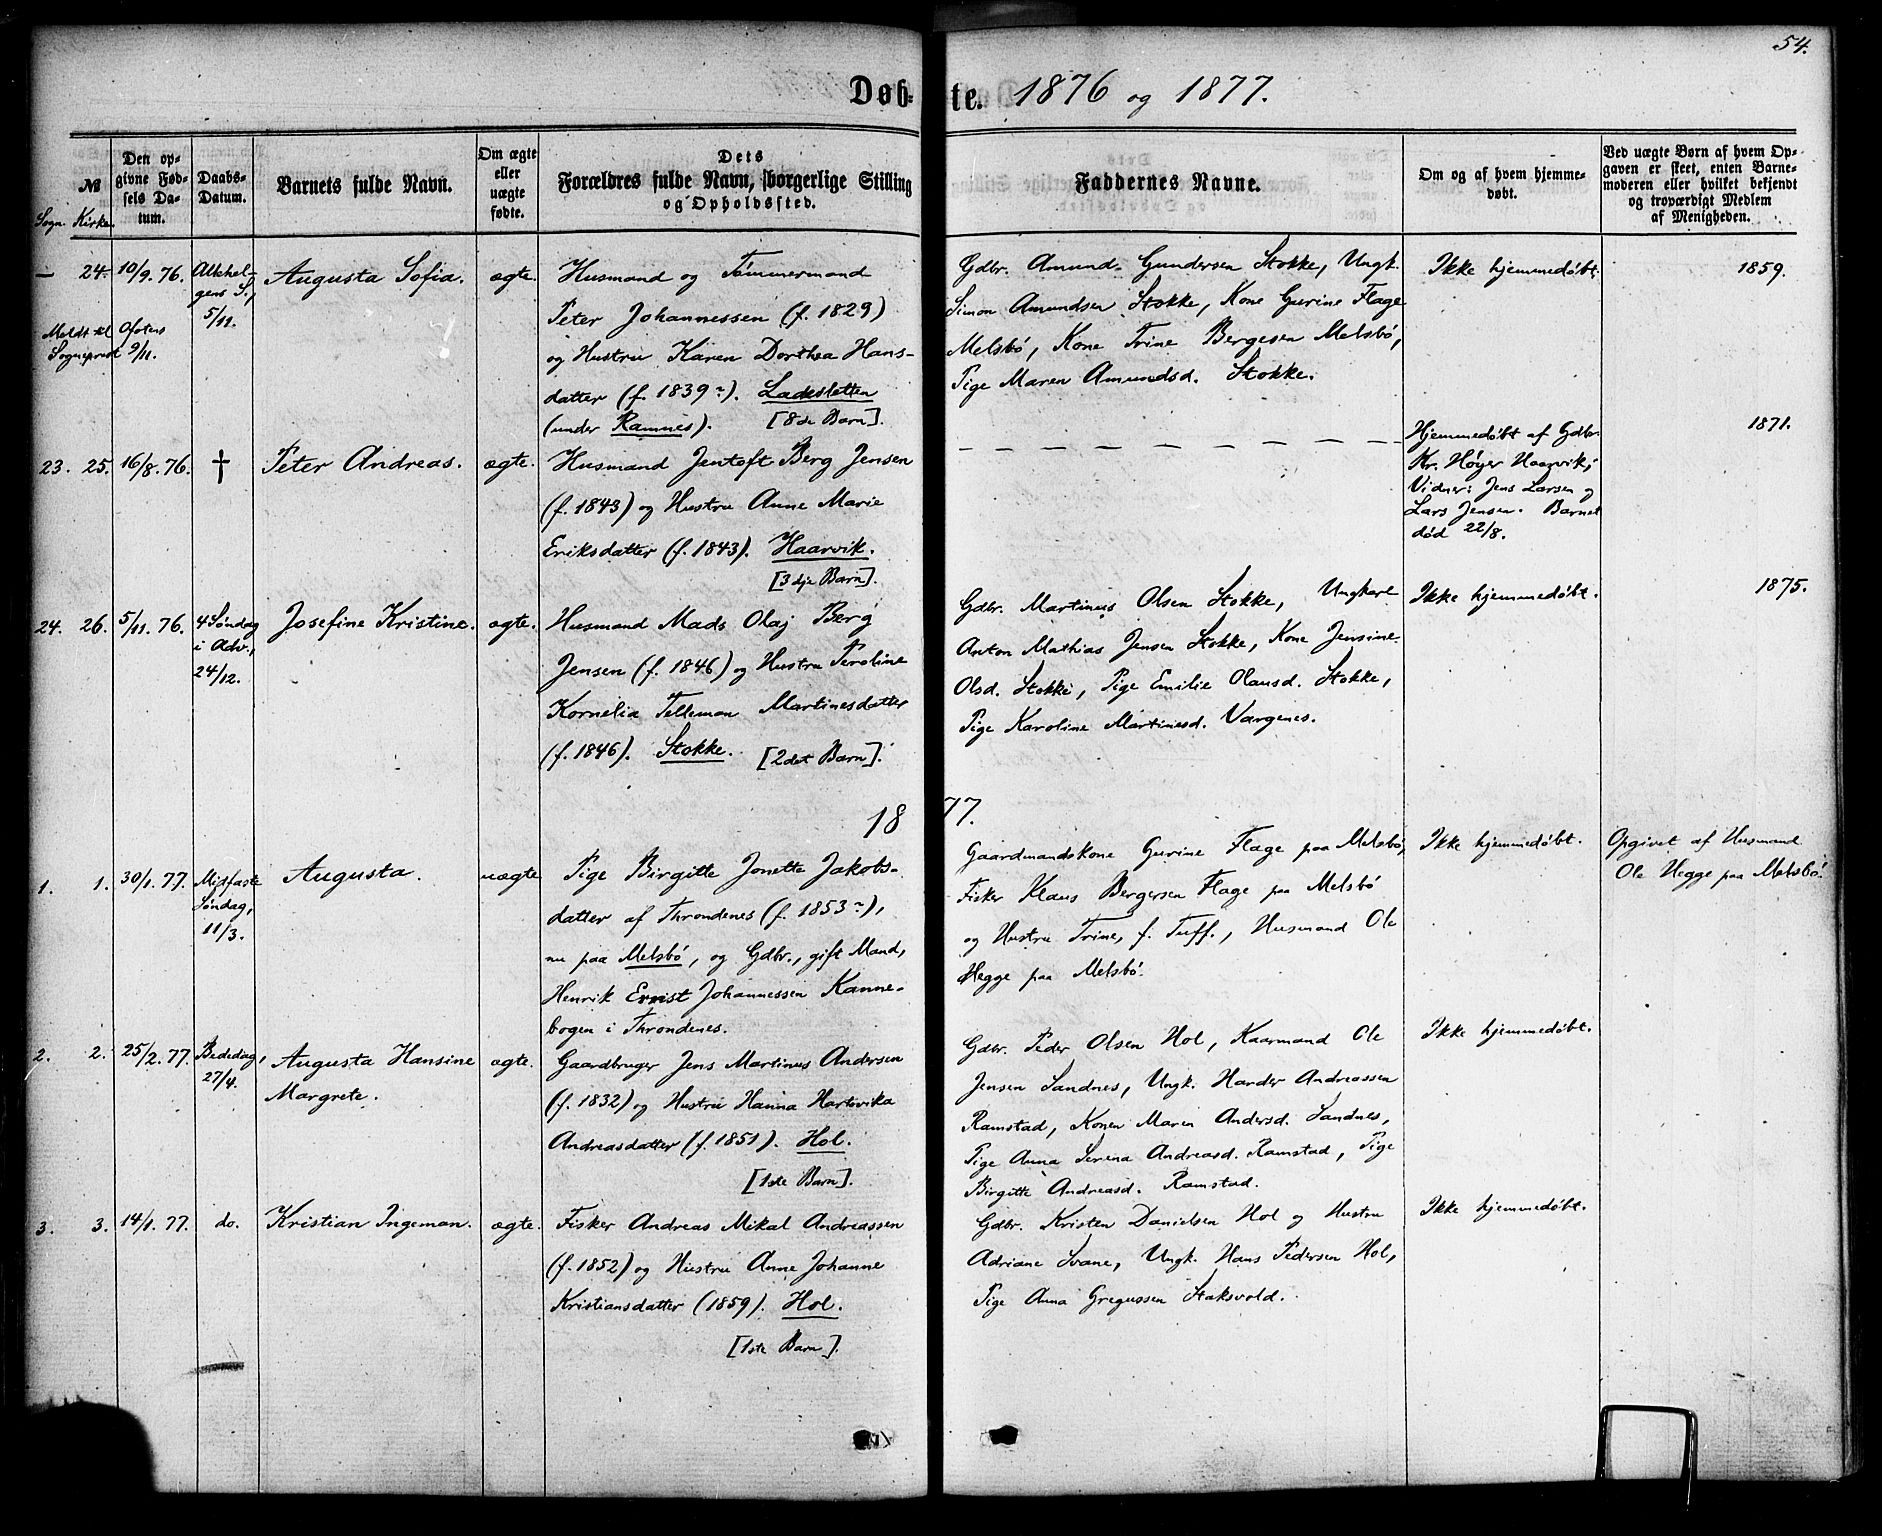 54.
Døb-te. 1876 og 1877.
Sogn. № Kirke.
Den op-
givne Fød-
sels Da-
tum.
Daabs-
Datum.
Barnets fulde Navn.
Om ægte
eller
uægte
fødte.
Dets
Forældres fulde Navn, borgerlige Stilling
og Opholdssted.
Faddernes Navne.
Om og af hvem hjemme-
døbt.
Ved uægte Børn af hvem Op-
gaven er skeet, enten Barne-
moderen eller hvilket bekjendt
og troværdigt Medlem
af Menigheden.
— 24. 10/9. 76.
Allehel-
gens S.,
5/11.
Meldt til Ofotens
Sogneprest 9/11.
Augusta Sofia.
ægte.
Husmand og Tømmermand
Peter Johannessen (f. 1829)
og Hustru Karen Dorthea Hans-
datter (f. 1839~). Ladesletten
(under Ramnes). [8de Barn].
Gdbr. Amund Gundersen Stokke, Ungk.
Simon Amundsen Stokke, Kone Gurine Flage
Melsbø, Kone Trine Bergesen Melsbø,
Pige Maren Amundsd. Stokke.
Ikke hjemmedøbt.
1859.
23. 25. 16/8. 76.
†
Peter Andreas.
ægte.
Husmand Jentoft Berg Jensen
(f. 1843) og Hustru Anne Marie
Eriksdatter (f. 1843). Haarvik.
[3dje Barn].
— — — — — — — — — —
Hjemmedøbt af Gdbr.
Kr. Høyer Haarvik;
Vidner: Jens Larsen og
Lars Jensen. Barnet
død 22/8.
1871.
24. 26. 5/11. 76.
4 Søndag
i Adv.,
24/12.
Josefine Kristine.
ægte.
Husmand Mads Olaj Berg
Jensen (f. 1846) og Hustru Peroline
Kornelia Telleman Martinesdatter
(f. 1846). Stokke. [2det Barn].
Gdbr. Martinus Olsen Stokke, Ungkarl
Anton Mathias Jensen Stokke, Kone Jensine
Olsd. Stokke, Pige Emilie Olausd. Stokke,
Pige Karoline Martinesd. Vargenes.
Ikke hjemmedøbt.
1875.
1877.
1. 1. 30/1. 77.
Midfaste
Søndag,
11/3.
Augusta.
uægte
Pige Birgitte Jonetta Jakobs-
datter af Throndenes (f. 1853~),
nu paa Melsbø, og Gdbr., gift Mand,
Henrik Ernst Johannessen Kanne-
bogen i Throndenes.
Gaardmandskone Gurine Flage paa Melsbø,
Fisker Klaus Bergersen Flage paa Melsbø
og Hustru Trine, f. Tuff., Husmand Ole
Hegge paa Melsbø.
Ikke hjemmedøbt.
Opgivet af Husmand
Ole Hegge paa Melsbø.
2. 2. 25/2. 77.
Bededag,
27/4.
Augusta Hansine
Margrete.
ægte.
Gaardbruger Jens Martinus Andersen
(f. 1832) og Hustru Hanna Hartvika
Andreasdatter (f. 1851). Hol.
[1ste Barn].
Gdbr. Peder Olsen Hol, Kaarmand Ole
Jensen Sandnes, Ungk. Harder Andreassen
Ramstad, Konen Maren Andersd. Sandnes,
Pige Anna Serena Andreasd. Ramstad, Pige
Birgitte Andreasd. Ramstad.
Ikke hjemmedøbt.
3. 3. 14/1. 77.
do.
Kristian Ingeman.
ægte.
Fisker Andreas Mikal Andreassen
(f. 1852) og Hustru Anne Johanne
Kristiansdatter (1859). Hol.
[1ste Barn].
Gdbr. Kristen Danielsen Hol og Hustru
Adriane Svane, Ungk. Hans Pedersen Hol,
Pige Anna Gregussen Staksvold.
Ikke hjemmedøbt.